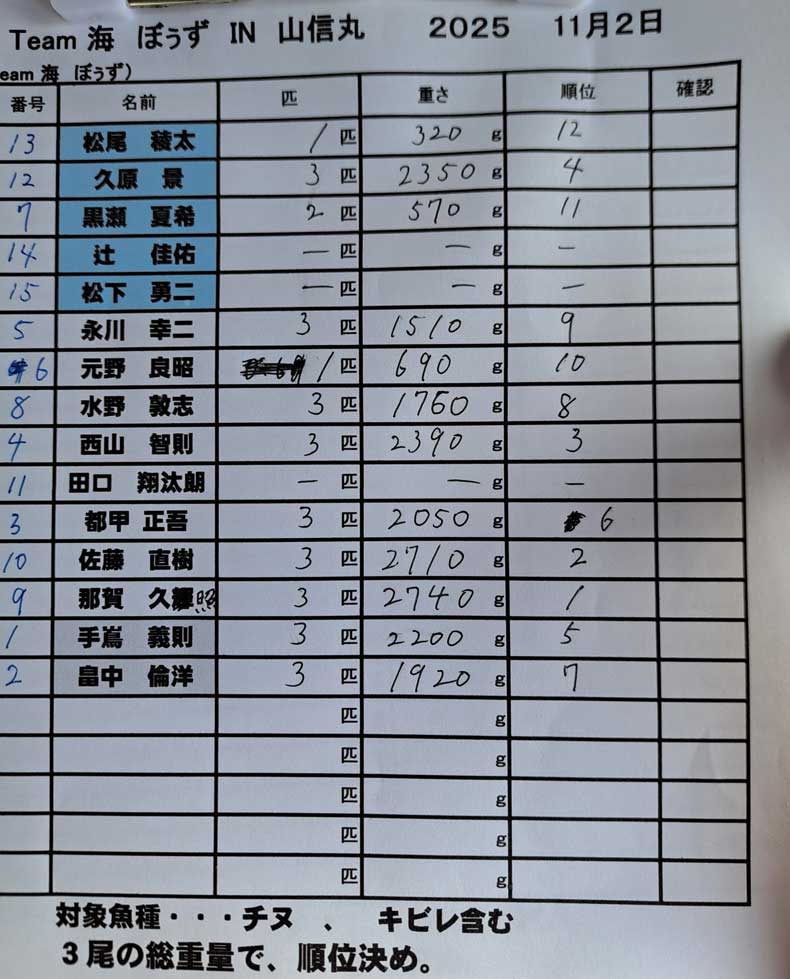 Team 海 ぼぅず IN 山信丸 2025 11月2日
eam 海 ぼぅず）
番号 名前 匹 重さ 順位 確認
13 松尾 稜太 1 匹 320 g 12
12 久原 景 3 匹 2350 g 4
7 黒瀬 夏希 2 匹 570 g 11
14 辻 佳佑 ー 匹 ー g ー
15 松下 勇二 ー 匹 ー g ー
5 永川 幸二 3 匹 1510 g 9
6 元野 良昭 1 匹 690 g 10
8 水野 敦志 3 匹 1760 g 8
4 西山 智則 3 匹 2390 g 3
11 田口 翔汰朗 ー 匹 ー g ー
3 都甲 正吾 3 匹 2050 g 6
10 佐藤 直樹 3 匹 2710 g 2
9 那賀 久照 3 匹 2740 g 1
1 手嶌 義則 3 匹 2200 g 5
2 畠中 倫洋 3 匹 1920 g 7
匹 g
匹 g
匹 g
匹 g
匹 g
対象魚種・・・チヌ 、 キビレ含む
３尾の総重量で、順位決め。